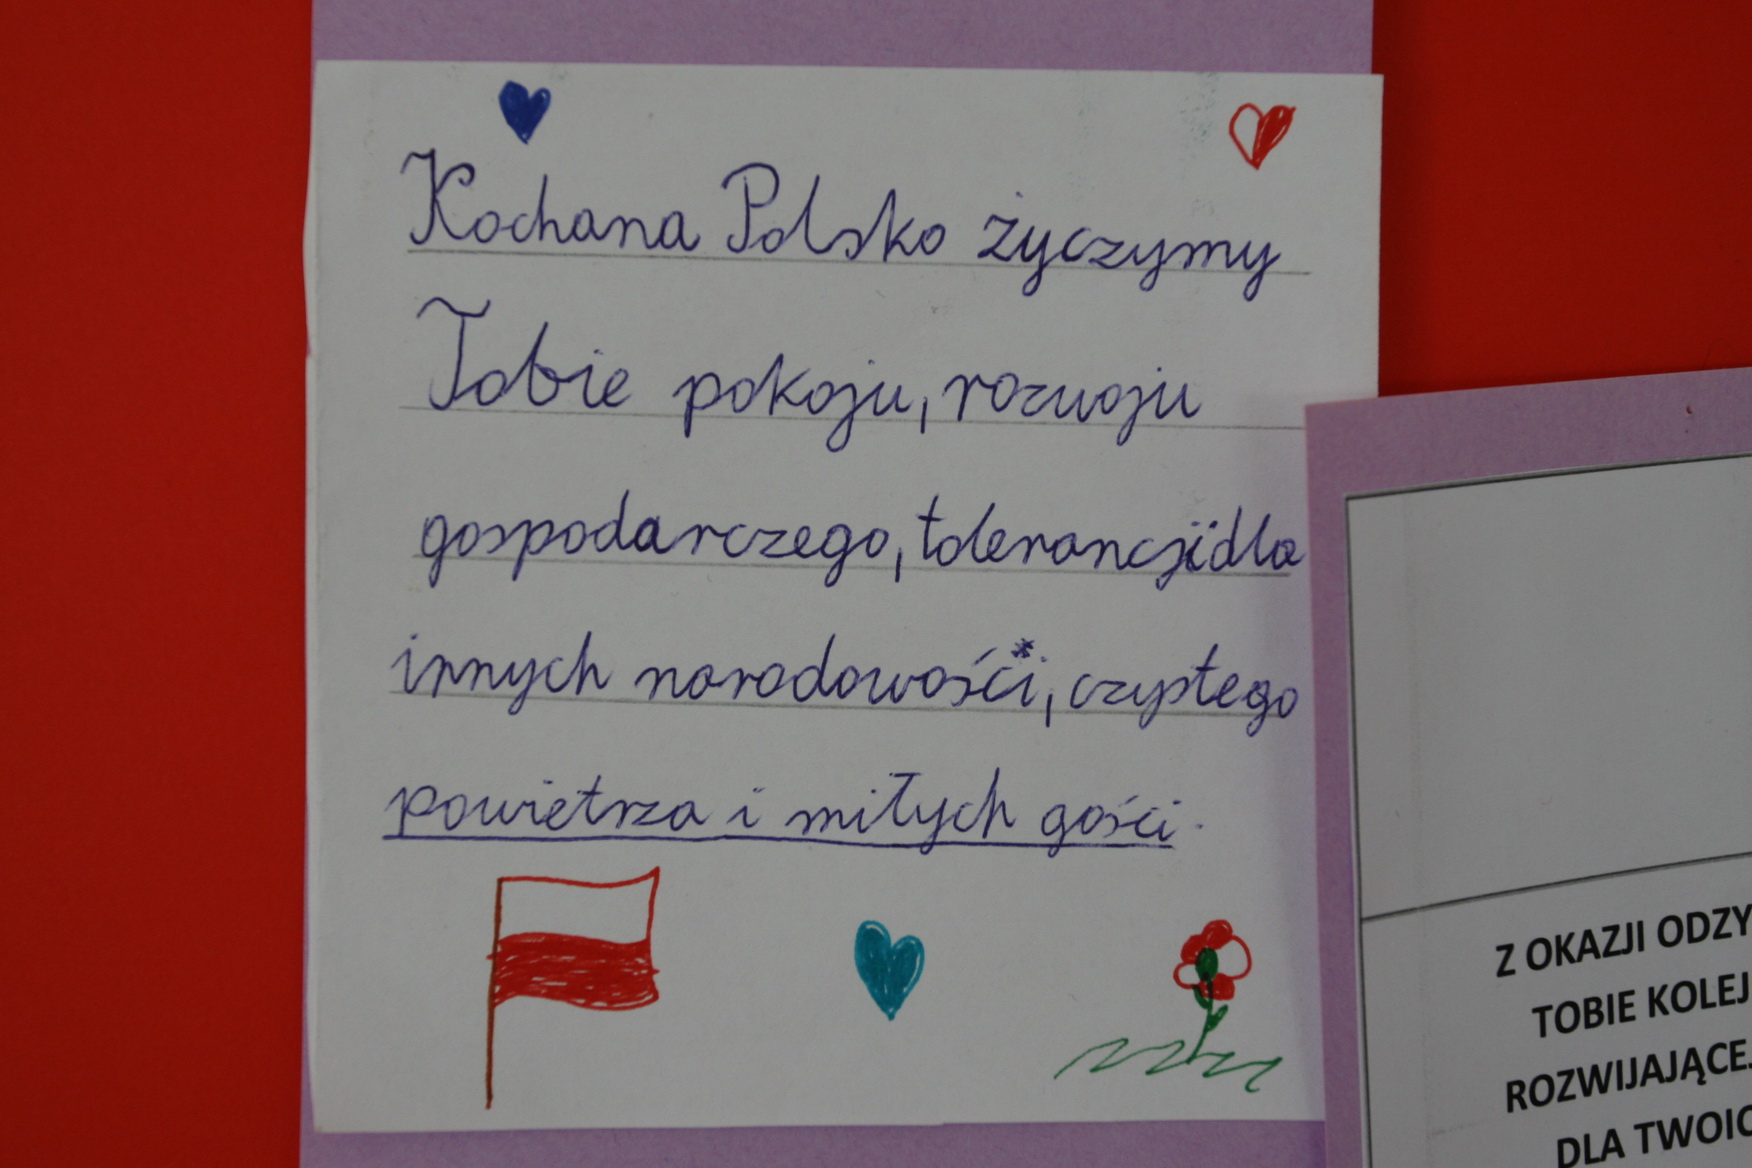 Kochana Polsko życzymy
Tobie pokoju, rozwoju
gospodarczego, tolerancji dla
innych narodowości, czystego
powietrza i miłych gości.
Z OKAZJI ODZY
TOBIE KOLEJ
ROZWIJAJĄCEJ
DLA TWOIC